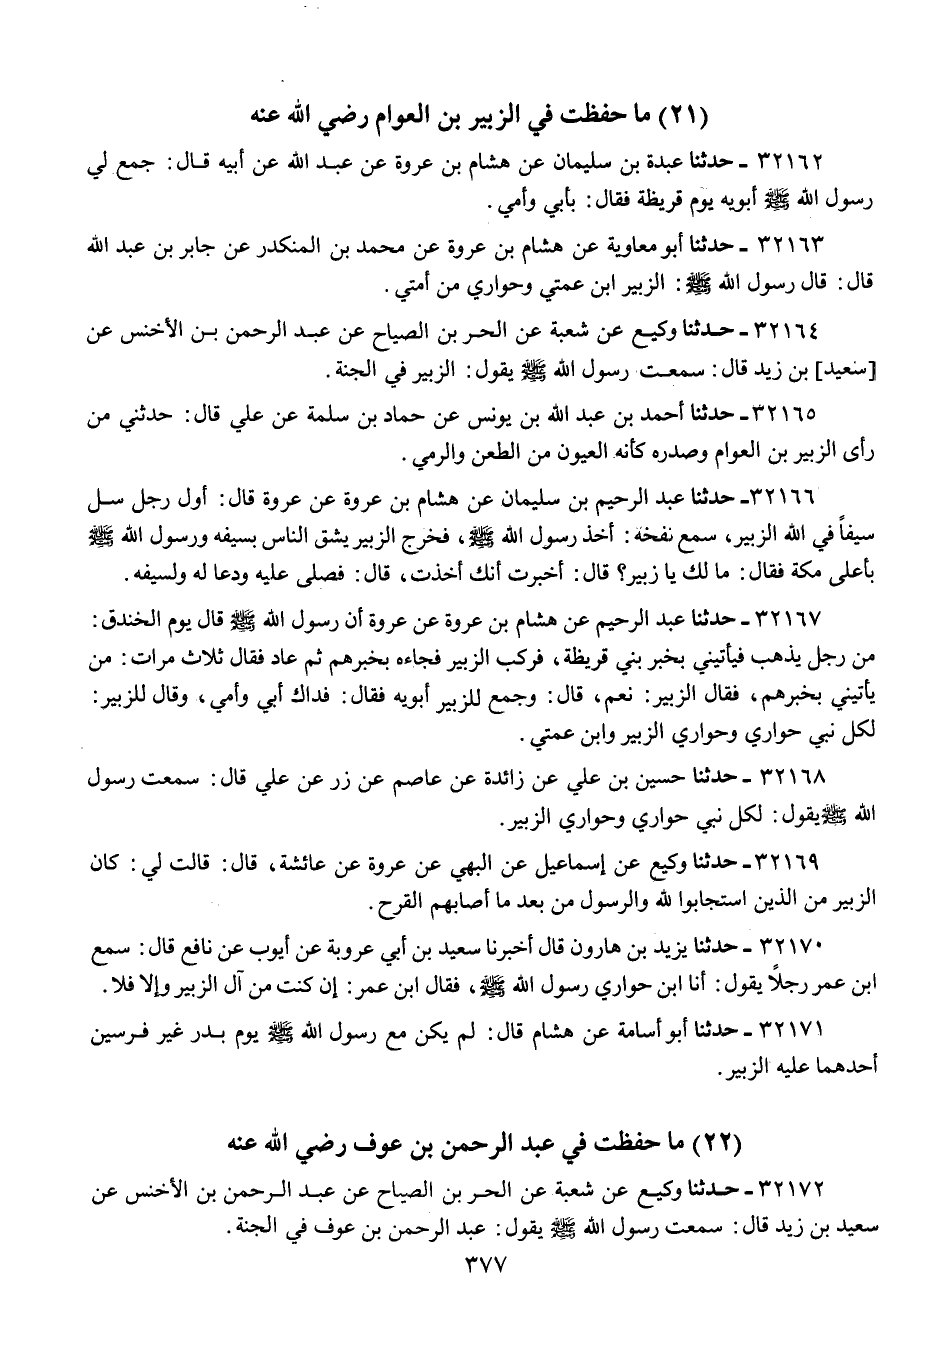 (٢١) ما حفظت في الزبير بن العوام رضي الله عنه
٣٢١٦٢ ـ حدثنا عبدة بن سليمان عن هشام بن عروة عن عبد الله عن أبيه قال: جمع لي
رسول الله ﷺ أبويه يوم قريظة فقال: بأبي وأمي.
٣٢١٦٣ ـ حدثنا أبو معاوية عن هشام بن عروة عن محمد بن المنكدر عن جابر بن عبد الله
قال: قال رسول الله ﷺ: الزبير ابن عمتي وحواري من أمتي.
٣٢١٦٤ ـ حدثنا وكيع عن شعبة عن الحر بن الصياح عن عبد الرحمن بن الأخنس عن
[سعيد] بن زيد قال: سمعت رسول الله ﷺ يقول: الزبير في الجنة.
٣٢١٦٥ ـ حدثنا أحمد بن عبد الله بن يونس عن حماد بن سلمة عن علي قال: حدثني من
رأى الزبير بن العوام وصدره كأنه العيون من الطعن والرمي.
٣٢١٦٦ ـ حدثنا عبد الرحيم بن سليمان عن هشام بن عروة عن عروة قال: أول رجل سل
سيفاً في الله الزبير، سمع نفخة: أخذ رسول الله ﷺ، فخرج الزبير يشق الناس بسيفه ورسول الله ﷺ
بأعلى مكة فقال: ما لك يا زبير؟ قال: أخبرت أنك أخذت، قال: فصلى عليه ودعا له ولسيفه.
٣٢١٦٧ ـ حدثنا عبد الرحيم عن هشام بن عروة عن عروة أن رسول الله ﷺ قال يوم الخندق:
من رجل يذهب فيأتيني بخبر بني قريظة، فركب الزبير فجاءه بخبرهم ثم عاد فقال ثلاث مرات: من
يأتيني بخبرهم، فقال الزبير: نعم، قال: وجمع للزبير أبويه فقال: فداك أبي وأمي، وقال للزبير:
لكل نبي حواري وحواري الزبير وابن عمتي.
٣٢١٦٨ ـ حدثنا حسين بن علي عن زائدة عن عاصم عن زر عن علي قال: سمعت رسول
الله ﷺ يقول: لكل نبي حواري وحواري الزبير.
٣٢١٦٩ ـ حدثنا وكيع عن إسماعيل عن البهي عن عروة عن عائشة، قال: قالت لي: كان
الزبير من الذين استجابوا لله والرسول من بعد ما أصابهم القرح.
٣٢١٧٠ ـ حدثنا يزيد بن هارون قال أخبرنا سعيد بن أبي عروبة عن أيوب عن نافع قال: سمع
ابن عمر رجلاً يقول: أنا ابن حواري رسول الله ﷺ، فقال ابن عمر: إن كنت من آل الزبير وإلا فلا.
٣٢١٧١ ـ حدثنا أبو أسامة عن هشام قال: لم يكن مع رسول الله ﷺ يوم بدر غير فرسين
أحدهما عليه الزبير.
(٢٢) ما حفظت في عبد الرحمن بن عوف رضي الله عنه
٣٢١٧٢ ـ حدثنا وكيع عن شعبة عن الحر بن الصياح عن عبد الرحمن بن الأخنس عن
سعيد بن زيد قال: سمعت رسول الله ﷺ يقول: عبد الرحمن بن عوف في الجنة.
٣٧٧